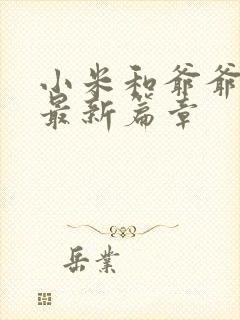 小米和爷爷
最新篇章
岳業